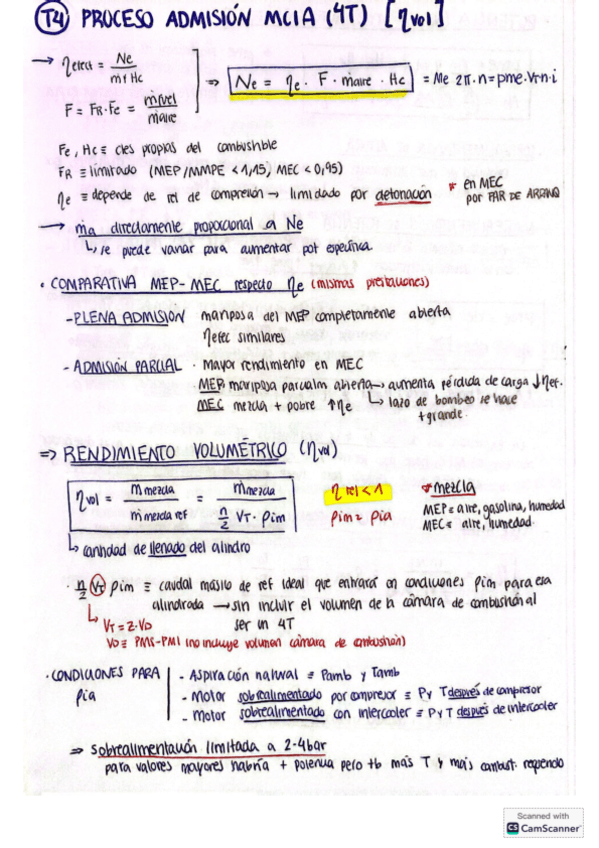 T4 PROCESO ADMISIÓN MCIA (4T) [ηvol]
→ ηefect = Ne / ṁf Hc
F = FR·Fe = ṁfuel / ṁaire
⇒ Ne = ηe · F · ṁaire · Hc = Me 2π·n = pme·VT·n·i
Fe, Hc ≡ ctes propias del combustible
FR ≡ limitado (MEP/MMPE < 1,15; MEC < 0,95)
ηe ≡ depende de rel de compresión → limitado por detonación * en MEC
por PAR DE ARRANQ
→ ṁa directamente proporcional a Ne
↳ se puede variar para aumentar pot específica
· COMPARATIVA MEP-MEC respecto ηe (mismas prestaciones)
- PLENA ADMISIÓN mariposa del MEP completamente abierta
ηefec similares
- ADMISIÓN PARCIAL · Mayor rendimiento en MEC
MEP mariposa parcialm abierta → aumenta pérdida de carga ↓ηef.
MEC mezcla + pobre ↑ηe ↳ lazo de bombeo se hace
+grande.
⇒ RENDIMIENTO VOLUMÉTRICO (ηvol)
ηvol = ṁmezcla / ṁmezcla ref = ṁmezcla / n/2 VT · ρim
η rel < 1
ρim = ρia
* mezcla
MEP = aire, gasolina, humedad
MEC = aire, humedad.
↳ cantidad de llenado del cilindro
· n/2 VT ρim ≡ caudal másico de ref ideal que entraría en condiciones ρim para esa
cilindrada → sin incluir el volumen de la cámara de combustión al
ser un 4T
↳ VT = Z·VD
VD ≡ PMS-PMI (no incluye volumen cámara de combustión)
· CONDICIONES PARA ρia
- Aspiración natural ≡ Pamb y Tamb
- Motor sobrealimentado por compresor ≡ P y T después de compresor
- Motor sobrealimentado con intercooler ≡ P y T después de intercooler
⇒ sobrealimentación limitada a 2-4bar
para valores mayores habría + potencia pero tb más T y más combust. requerido
Scanned with
CS CamScanner